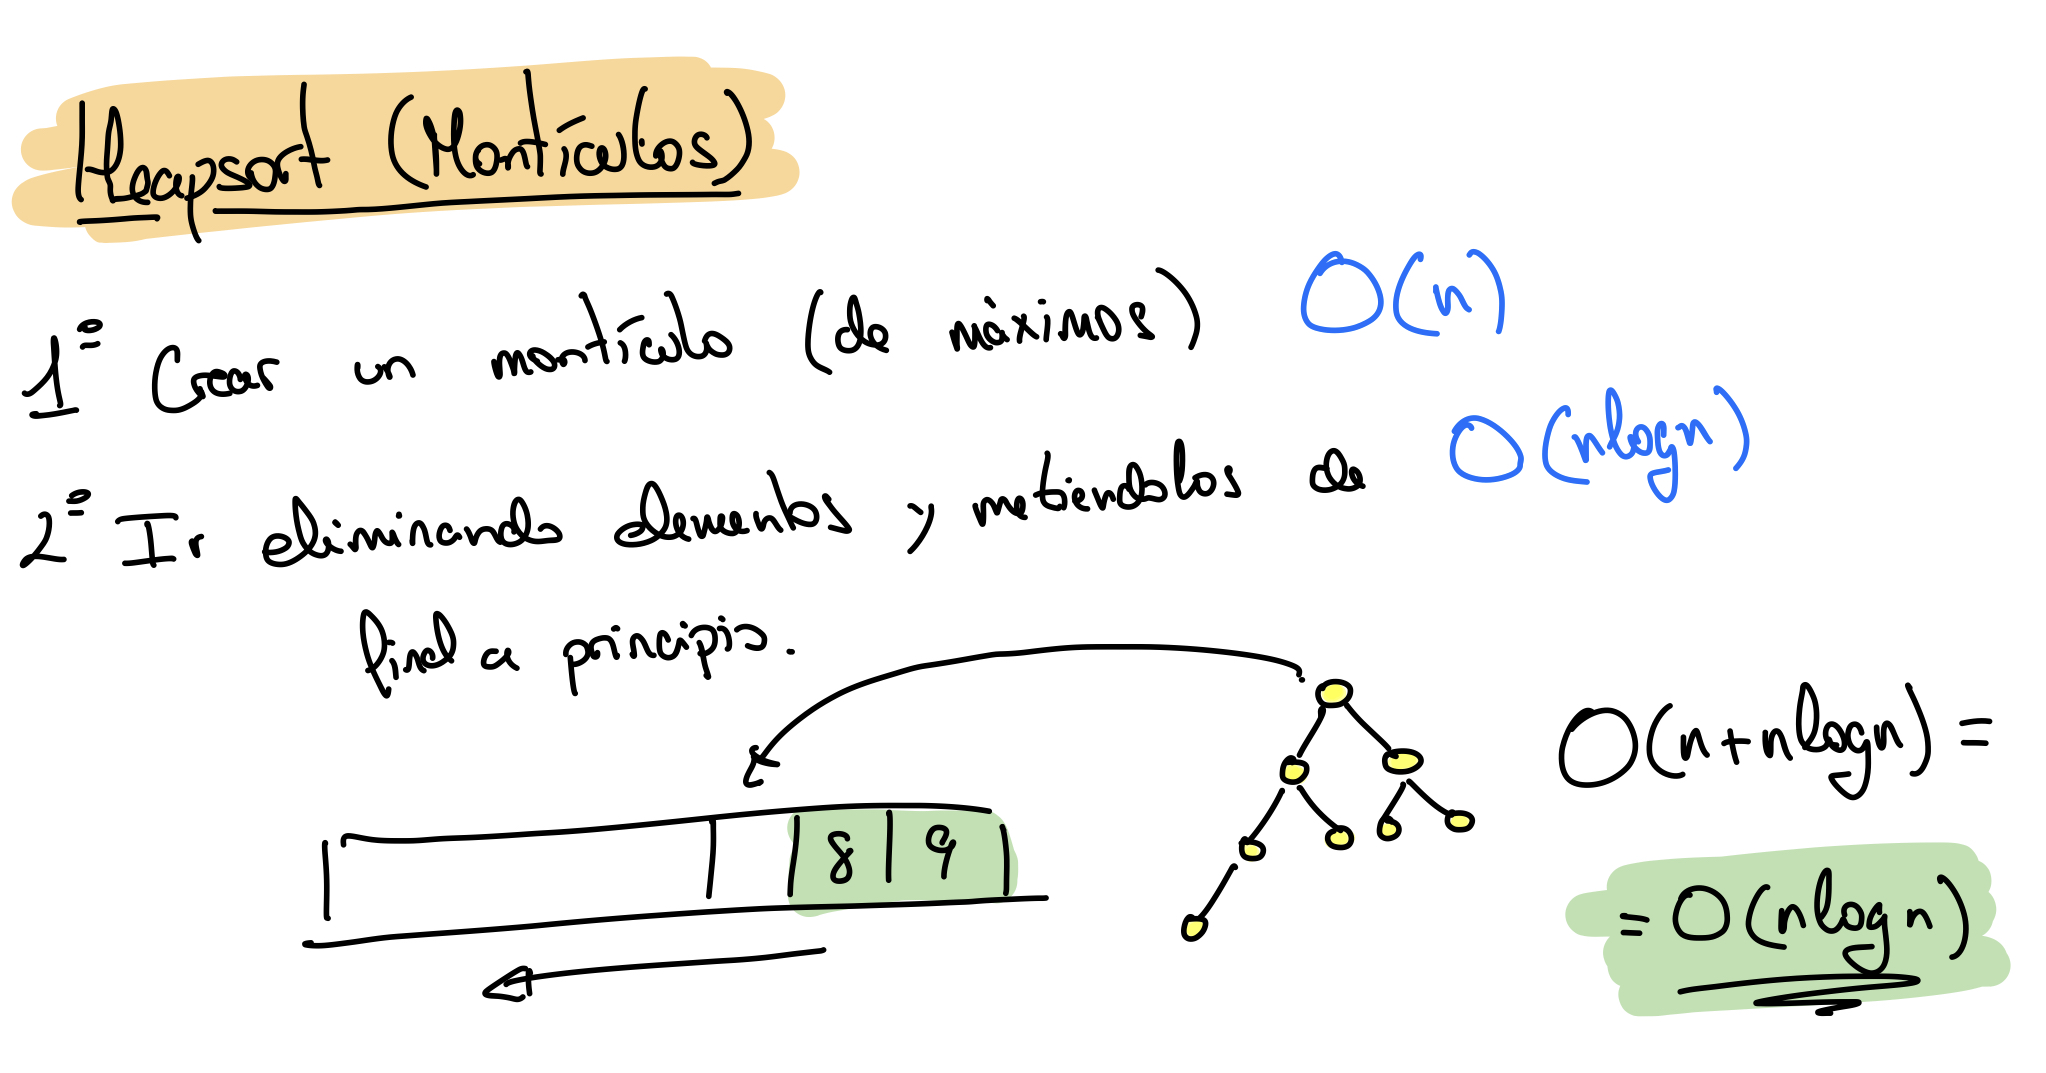 Heapsort (Montículos)
1º Crear un montículo (de máximos) O(n)
2º Ir eliminando elementos y metiendolos de O(nlogn)
final a principio.
O(n+nlogn) =
8 9
= O(nlogn)